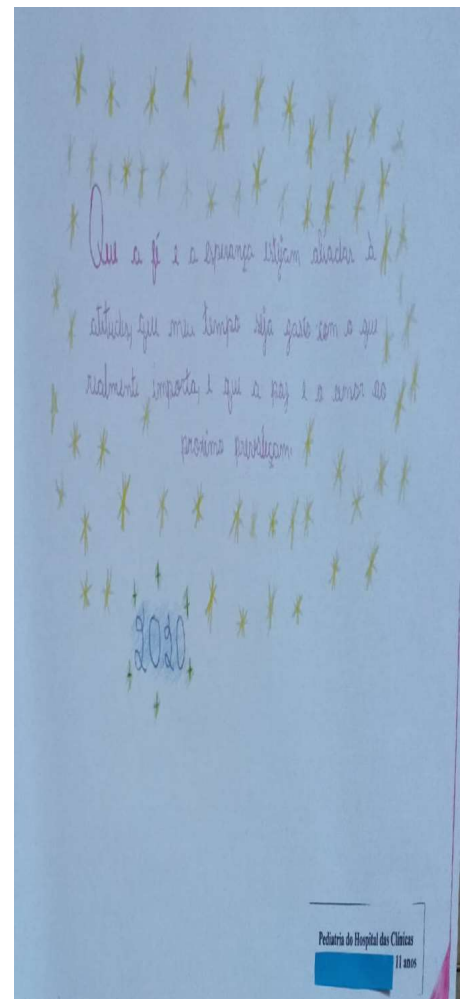 Que a fé e a esperança estejam aliadas à
atitudes, que meu tempo seja gasto com o que
realmente importa, e que a paz e o amor ao
proximo prevaleçam
2020
Pediatria do Hospital das Clínicas
11 anos